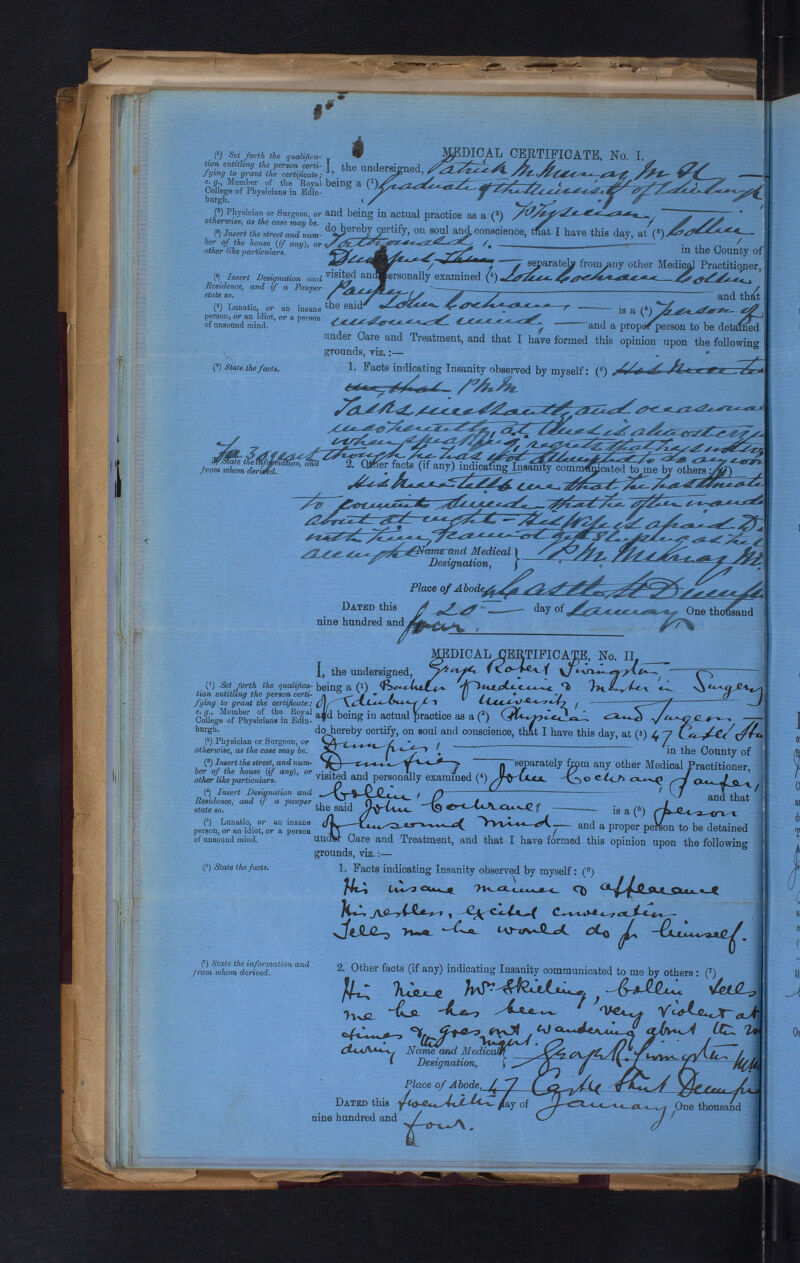 MEDICAL CERTIFICATE, No. I.
(1) Set forth the qualifica-
tion entitling the person certi-
fying to grant the certificate;
e.g., Member of the Royal
College of Physicians in Edin-
burgh.
(2) Physician or Surgeon, or
otherwise, as the case may be.
(3) Insert the street and num-
ber of the house (if any), or
other like particulars.
(4) Insert Designation and
Residence, and if a Pauper
state so.
(5) Lunatic, or an insane
person, or an idiot, or a person
of unsound mind.
(6) State the facts.
(7) State the information, and
from whom derived.
I, the undersigned, Patrick M. Murray M
being a (1) Graduate of the University of Edinburgh
and being in actual practice as a (2) Physician,
do hereby certify, on soul and conscience, that I have this day, at (3) Collin
Torthorwald, in the County of
Dumfries separately from any other Medical Practitioner,
visited and personally examined (4) John Cochrane Collin
Pauper, and that
the said John Cochrane, is a (5) person of
unsound mind, and a proper person to be detained
under Care and Treatment, and that I have formed this opinion upon the following
grounds, viz.:—
1. Facts indicating Insanity observed by myself: (6) His Niece
me that P M M
Talks incessantly and occasional
incoherently, at times is almost
when speaking, regrets that he
though he has not attempted to do any
2. Other facts (if any) indicating Insanity communicated to me by others: (7)
His Niece tells me that he has threate
to commit Suicide that he often wande
about at night - His Wife is afraid
with him, cannot get Sleeping as he
all night
Name and Medical Designation, P. M. Murray M.
Place of Abode, Castle St Dumf
DATED this 20 day of January One thousand
nine hundred and four.
MEDICAL CERTIFICATE, No. II.
(1) Set forth the qualifica-
tion entitling the person certi-
fying to grant the certificate;
e.g., Member of the Royal
College of Physicians in Edin-
burgh.
(2) Physician or Surgeon, or
otherwise, as the case may be.
(3) Insert the street, and num-
ber of the house (if any), or
other like particulars.
(4) Insert Designation and
Residence, and if a pauper
state so.
(5) Lunatic, or an insane
person, or an idiot, or a person
of unsound mind.
(6) State the facts.
(7) State the information and
from whom derived.
I, the undersigned, George Robert Livingston
being a (1) Bachelor of medicine & Master in Surgery
of Edinburgh University,
and being in actual practice as a (2) Physician and Surgeon,
do hereby certify, on soul and conscience, that I have this day, at (3) 47 Castle Stre
Dumfries, in the County of
Dumfries separately from any other Medical Practitioner,
visited and personally examined (4) John Cochrane Pauper,
Collin, and that
the said John Cochrane, is a (5) person
of unsound mind and a proper person to be detained
under Care and Treatment, and that I have formed this opinion upon the following
grounds, viz.:—
1. Facts indicating Insanity observed by myself: (6)
His insane manner & appearance
His restless, excited conversation
Tells me he would do for himself.
2. Other facts (if any) indicating Insanity communicated to me by others: (7)
His Niece Mrs Skilling, Collin tells
me he has been very violent at
times & goes out wandering about the
during the night.
Name and Medical Designation, George R. Livingston
Place of Abode, 47 Castle Street Dumfri
DATED this twentieth day of January, One thousand
nine hundred and four.